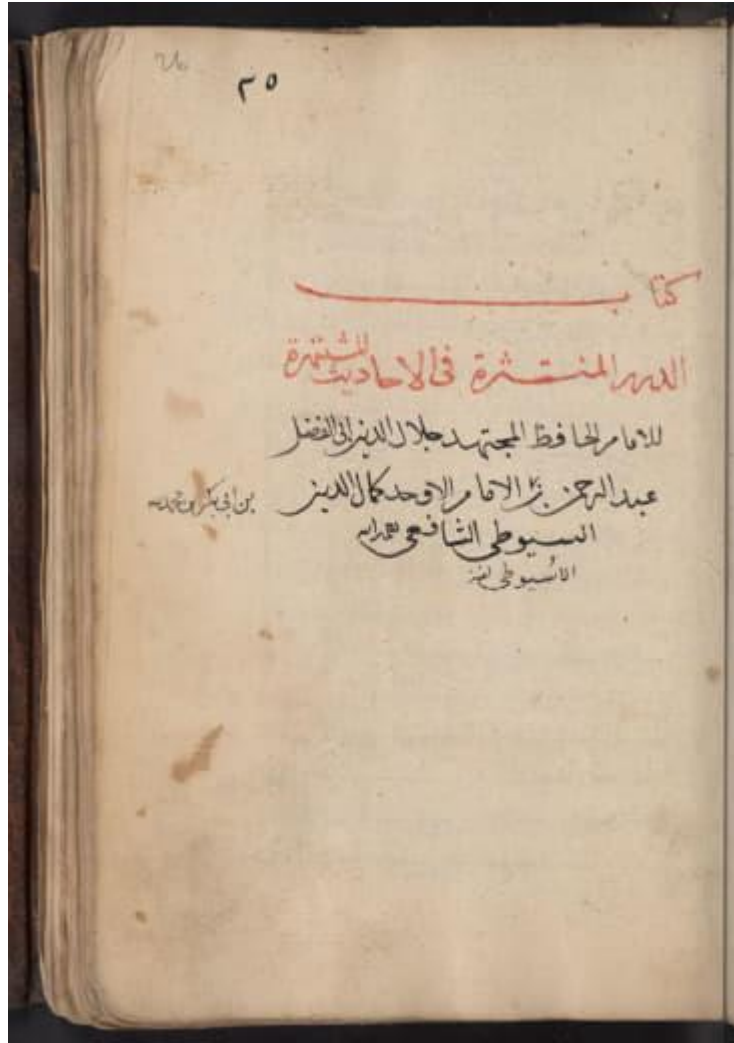 ٣٥
كتاب
الدرر المنتثرة في الاحاديث المشتهرة
للامام الحافظ المجتهد جلال الدين ابي الفضل
عبد الرحمن بن الامام الاوحد كمال الدين
بن ابي بكر بن محمد
السيوطي الشافعي
الاسيوطي